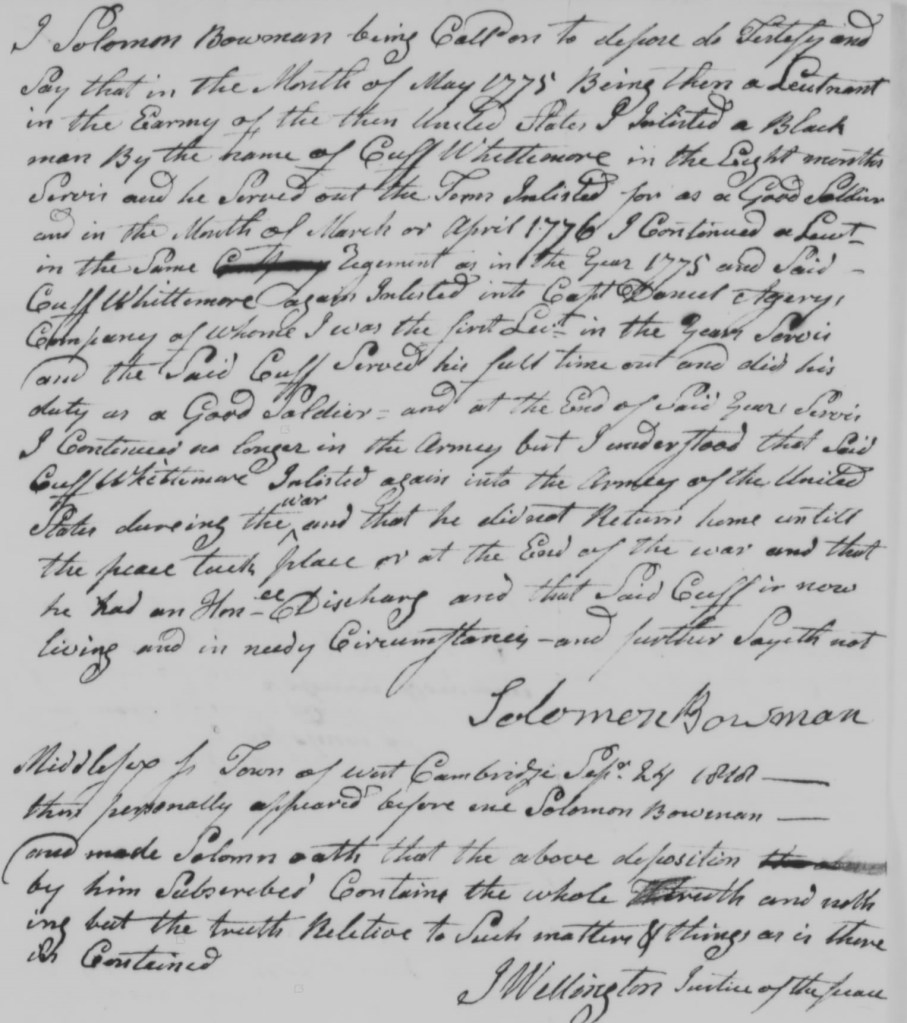 I Solomon Bowman being Calld on to depose do Testefy and
Say that in the Month of May 1775 Being then a Leutnant
in the Earmy of the then United States I Inlisted a Black
man By the name of Cuff Whittemore in the Eight months
Servis and he Served out the Term Inlisted for as a Good Soldier
and in the Month of March or April 1776 I Continued a Leut
in the Same Regement as in the Year 1775 and Said
Cuff Whittemore again Inlisted into Capt Daniel Egerys
Company of Whome I was the first Leut in the Years Servis
and the Said Cuff Served his full time out and did his
duty as a Good Soldier = and at the End of Said Years Servis
I Continued no longer in the Armey but I understood that Said
Cuff Whittemore Inlisted again into the Armey of the United
States dureing the war and that he did not Return home untill
the peace tuck place or at the End of the war and that
he had an Hon-ee Discharg and that Said Cuff is now
living and in needy Circumstances - and further Sayeth not
Solomon Bowman
Middlesex ss Town of west Cambridge Sepr. 24 1818
then personally appeared before me Solomon Bowman
and made Solomn oath that the above deposition
by him Subscrebed Contains the whole truth and noth
ing but the truth Relitive to Such matters & things as is there
in Contained
J Wellington Justice of the peace